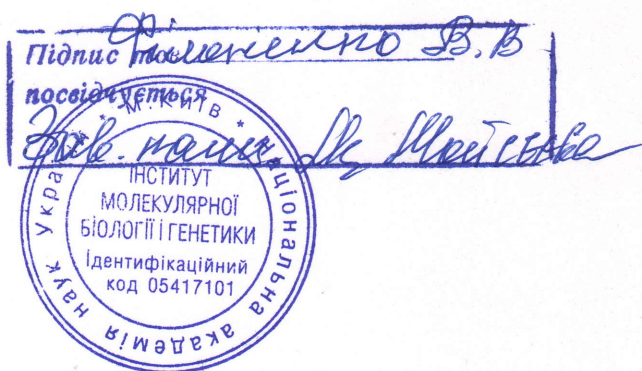 Підпис тов. Філоненко В.В
посвідчується
Зав. канц.
* М. КИЇВ * Національна академія наук
ІНСТИТУТ
МОЛЕКУЛЯРНОЇ
БІОЛОГІЇ І ГЕНЕТИКИ
Ідентифікаційний
код 05417101